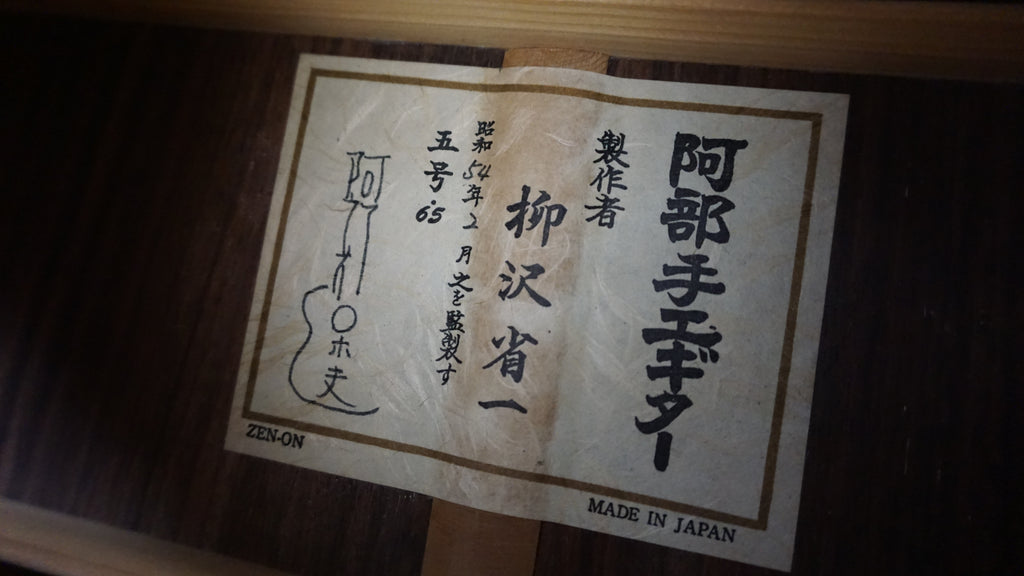 阿部手工ギター
製作者
柳沢省一
昭和54年2月之を監製す
五号
65
阿
ZEN-ON
MADE IN JAPAN